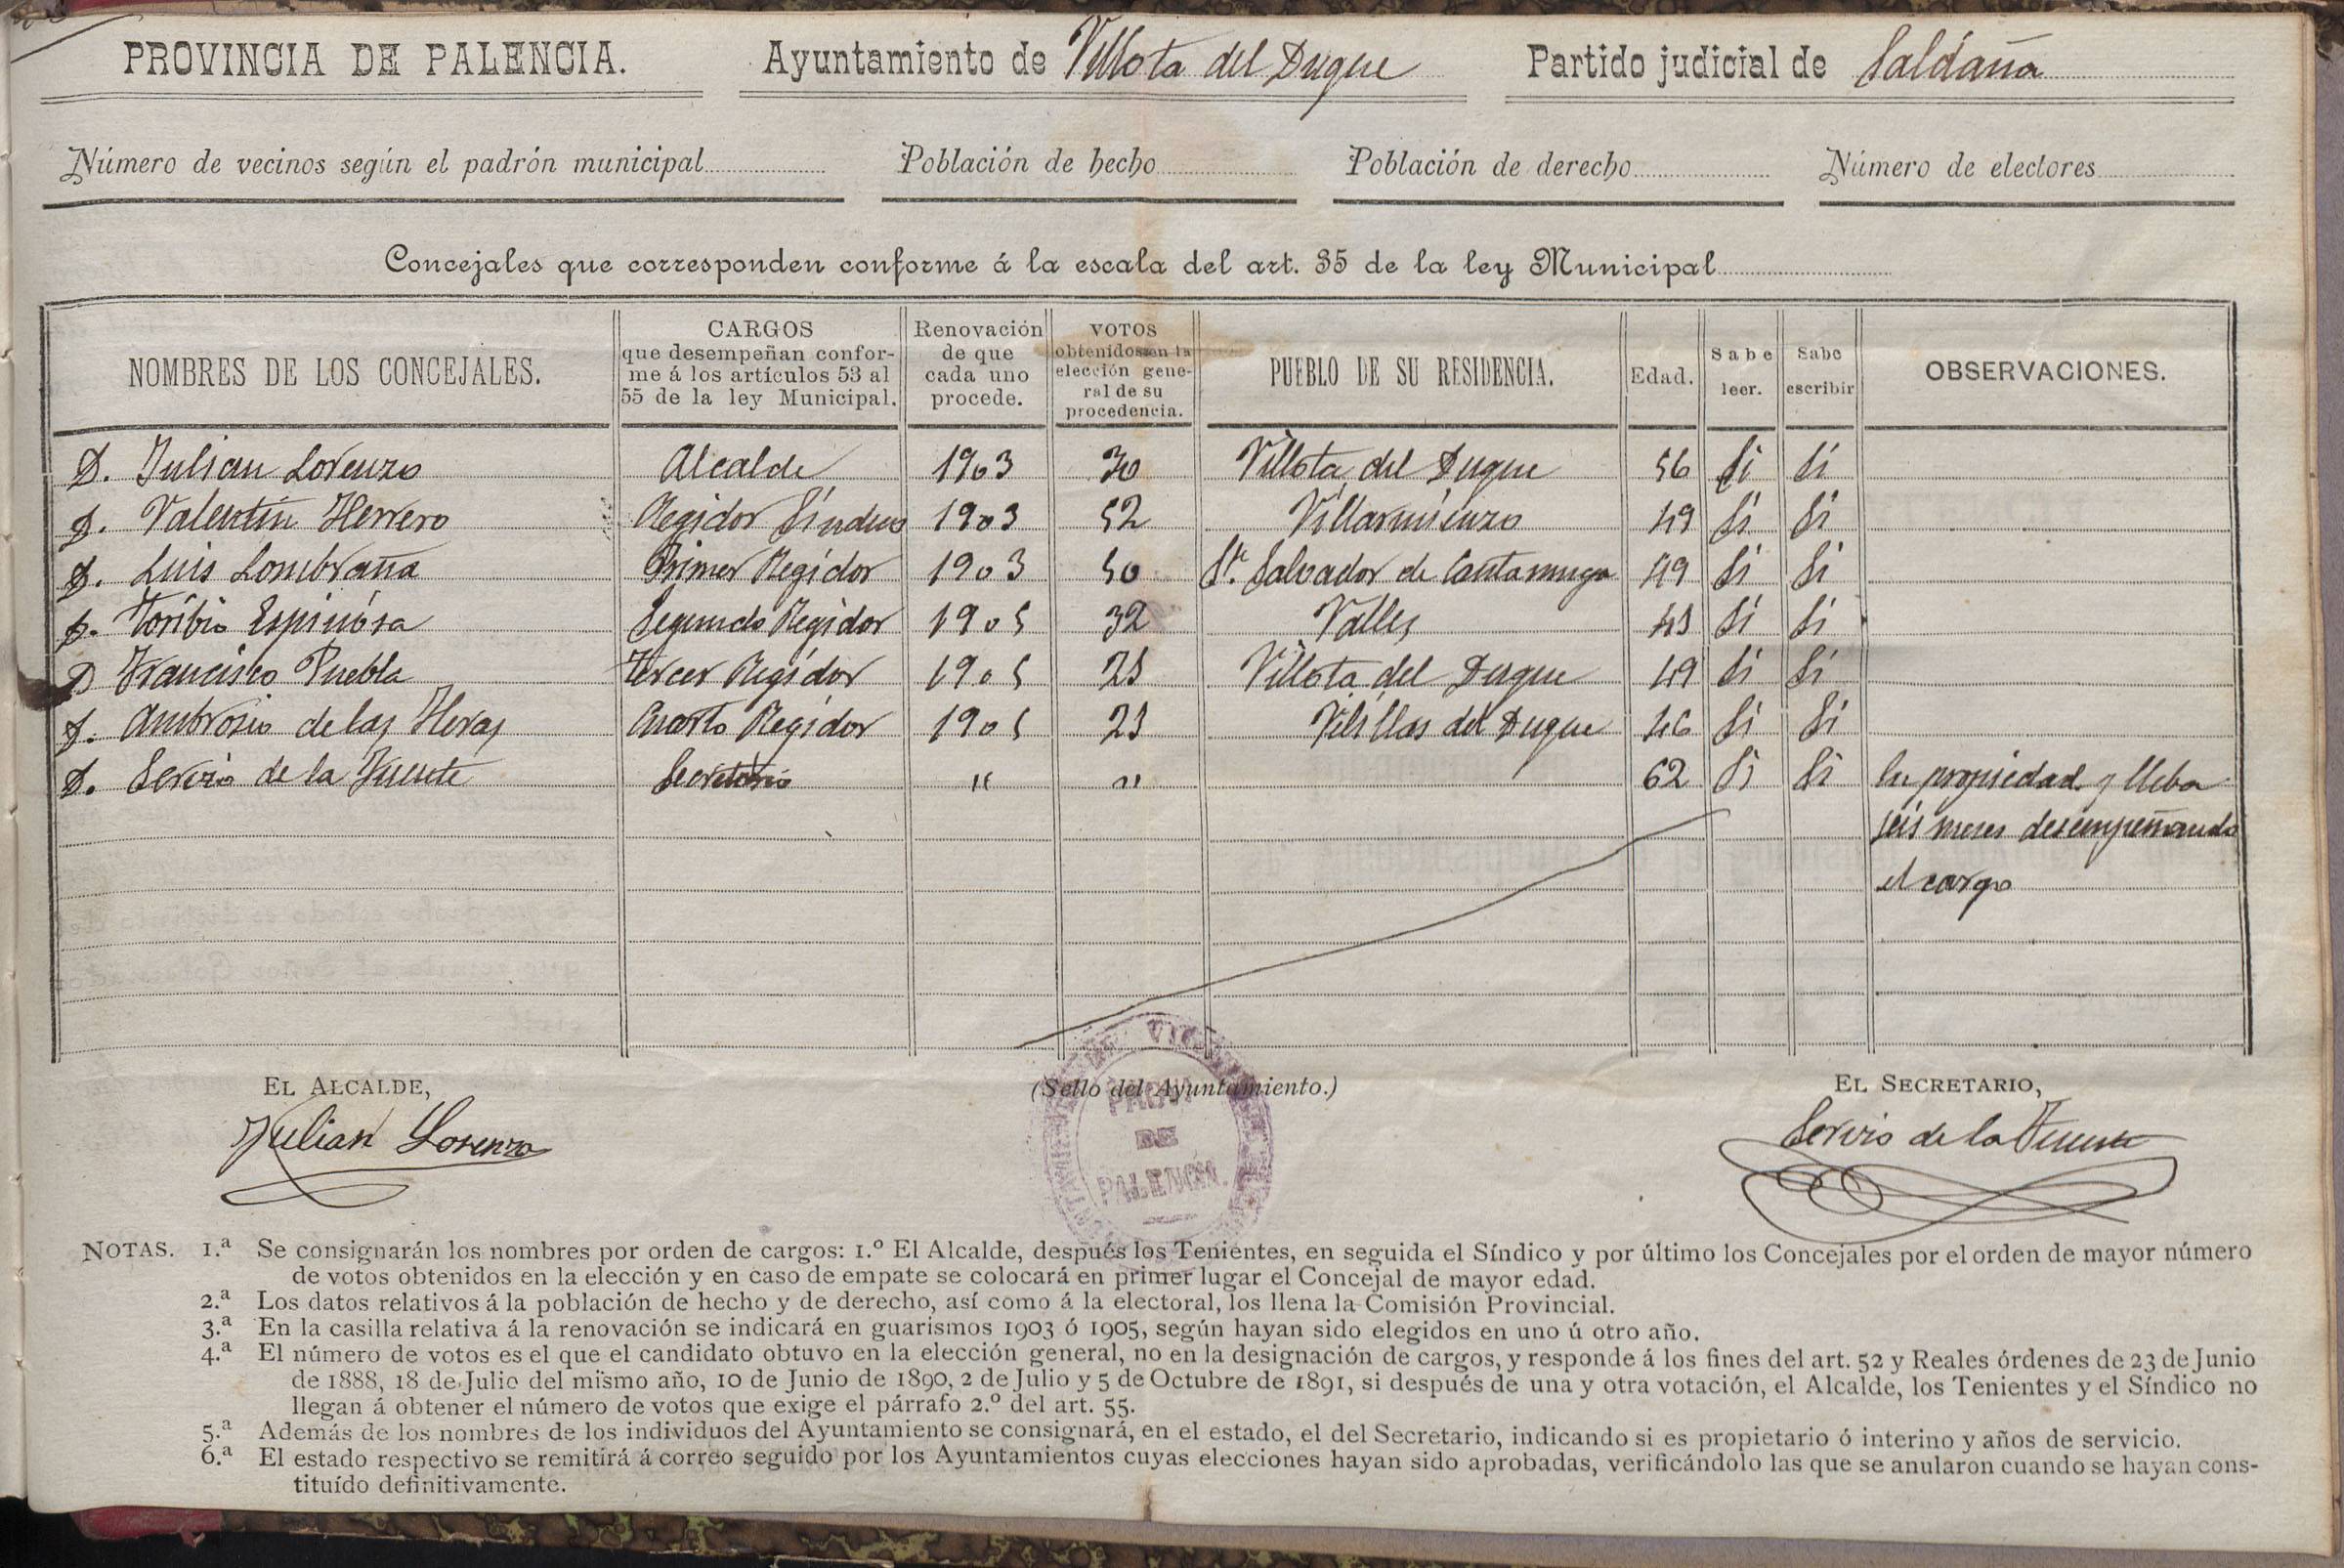 PROVINCIA DE PALENCIA. Ayuntamiento de Villota del Duque Partido judicial de Saldaña
Número de vecinos según el padrón municipal Población de hecho Población de derecho Número de electores
Concejales que corresponden conforme á la escala del art. 35 de la ley Municipal
NOMBRES DE LOS CONCEJALES.
CARGOS
que desempeñan confor-
me á los artículos 53 al
55 de la ley Municipal.
Renovación
de que
cada uno
procede.
VOTOS
obtenidos en la
elección gene-
ral de su
procedencia.
PUEBLO DE SU RESIDENCIA.
Edad.
Sabe
leer.
Sabe
escribir
OBSERVACIONES.
D. Julian Lorenzo Alcalde 1903 30 Villota del Duque 56 Si Si
D. Valentin Herrero Regidor Síndico 1903 52 Villarmienzo 49 Si Si
D. Luis Lombraña Primer Regidor 1903 50 Sn. Salvador de Cantamuga 49 Si Si
D. Toribio Espinosa Segundo Regidor 1905 32 Valles 43 Si Si
D Francisco Puebla Tercer Regidor 1905 23 Villota del Duque 49 Si Si
D. Ambrosio de las Heras Cuarto Regidor 1905 23 Velillas del Duque 46 Si Si
D. Servio de la Fuente Secretario " " 62 Si Si En propiedad y lleba
seis meses desempeñando
el cargo
EL ALCALDE,
(Sello del Ayuntamiento.)
EL SECRETARIO,
Julian Lorenzo
Servio de la Fuente
PROV.
DE
PALENCIA.
NOTAS. 1.ª Se consignarán los nombres por orden de cargos: 1.º El Alcalde, después los Tenientes, en seguida el Síndico y por último los Concejales por el orden de mayor número
de votos obtenidos en la elección y en caso de empate se colocará en primer lugar el Concejal de mayor edad.
2.ª Los datos relativos á la población de hecho y de derecho, así como á la electoral, los llena la Comisión Provincial.
3.ª En la casilla relativa á la renovación se indicará en guarismos 1903 ó 1905, según hayan sido elegidos en uno ú otro año.
4.ª El número de votos es el que el candidato obtuvo en la elección general, no en la designación de cargos, y responde á los fines del art. 52 y Reales órdenes de 23 de Junio
de 1888, 18 de Julio del mismo año, 10 de Junio de 1890, 2 de Julio y 5 de Octubre de 1891, si después de una y otra votación, el Alcalde, los Tenientes y el Síndico no
llegan á obtener el número de votos que exige el párrafo 2.º del art. 55.
5.ª Además de los nombres de los individuos del Ayuntamiento se consignará, en el estado, el del Secretario, indicando si es propietario ó interino y años de servicio.
6.ª El estado respectivo se remitirá á correo seguido por los Ayuntamientos cuyas elecciones hayan sido aprobadas, verificándolo las que se anularon cuando se hayan cons-
tituído definitivamente.